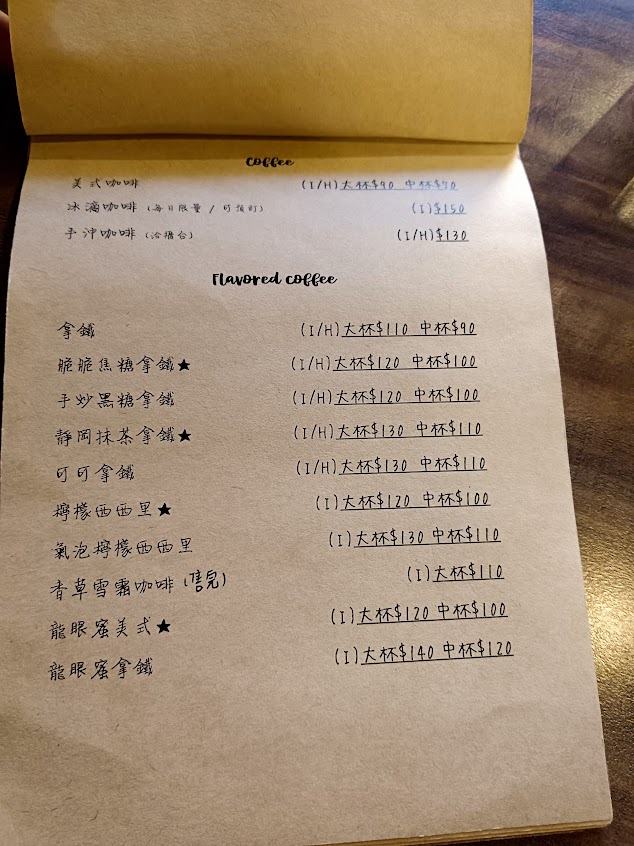 Coffee
美式咖啡 (I/H)大杯$90 中杯$70
冰滴咖啡 (每日限量 / 可預訂) (I)$150
手沖咖啡 (洽櫃台) (I/H)$130
Flavored coffee
拿鐵 (I/H)大杯$110 中杯$90
脆脆焦糖拿鐵★ (I/H)大杯$120 中杯$100
手炒黑糖拿鐵 (I/H)大杯$120 中杯$100
靜岡抹茶拿鐵★ (I/H)大杯$130 中杯$110
可可拿鐵 (I/H)大杯$130 中杯$110
檸檬西西里★ (I)大杯$120 中杯$100
氣泡檸檬西西里 (I)大杯$130 中杯$110
香草雪霜咖啡 (售完) (I)大杯$110
龍眼蜜美式★ (I)大杯$120 中杯$100
龍眼蜜拿鐵 (I)大杯$140 中杯$120